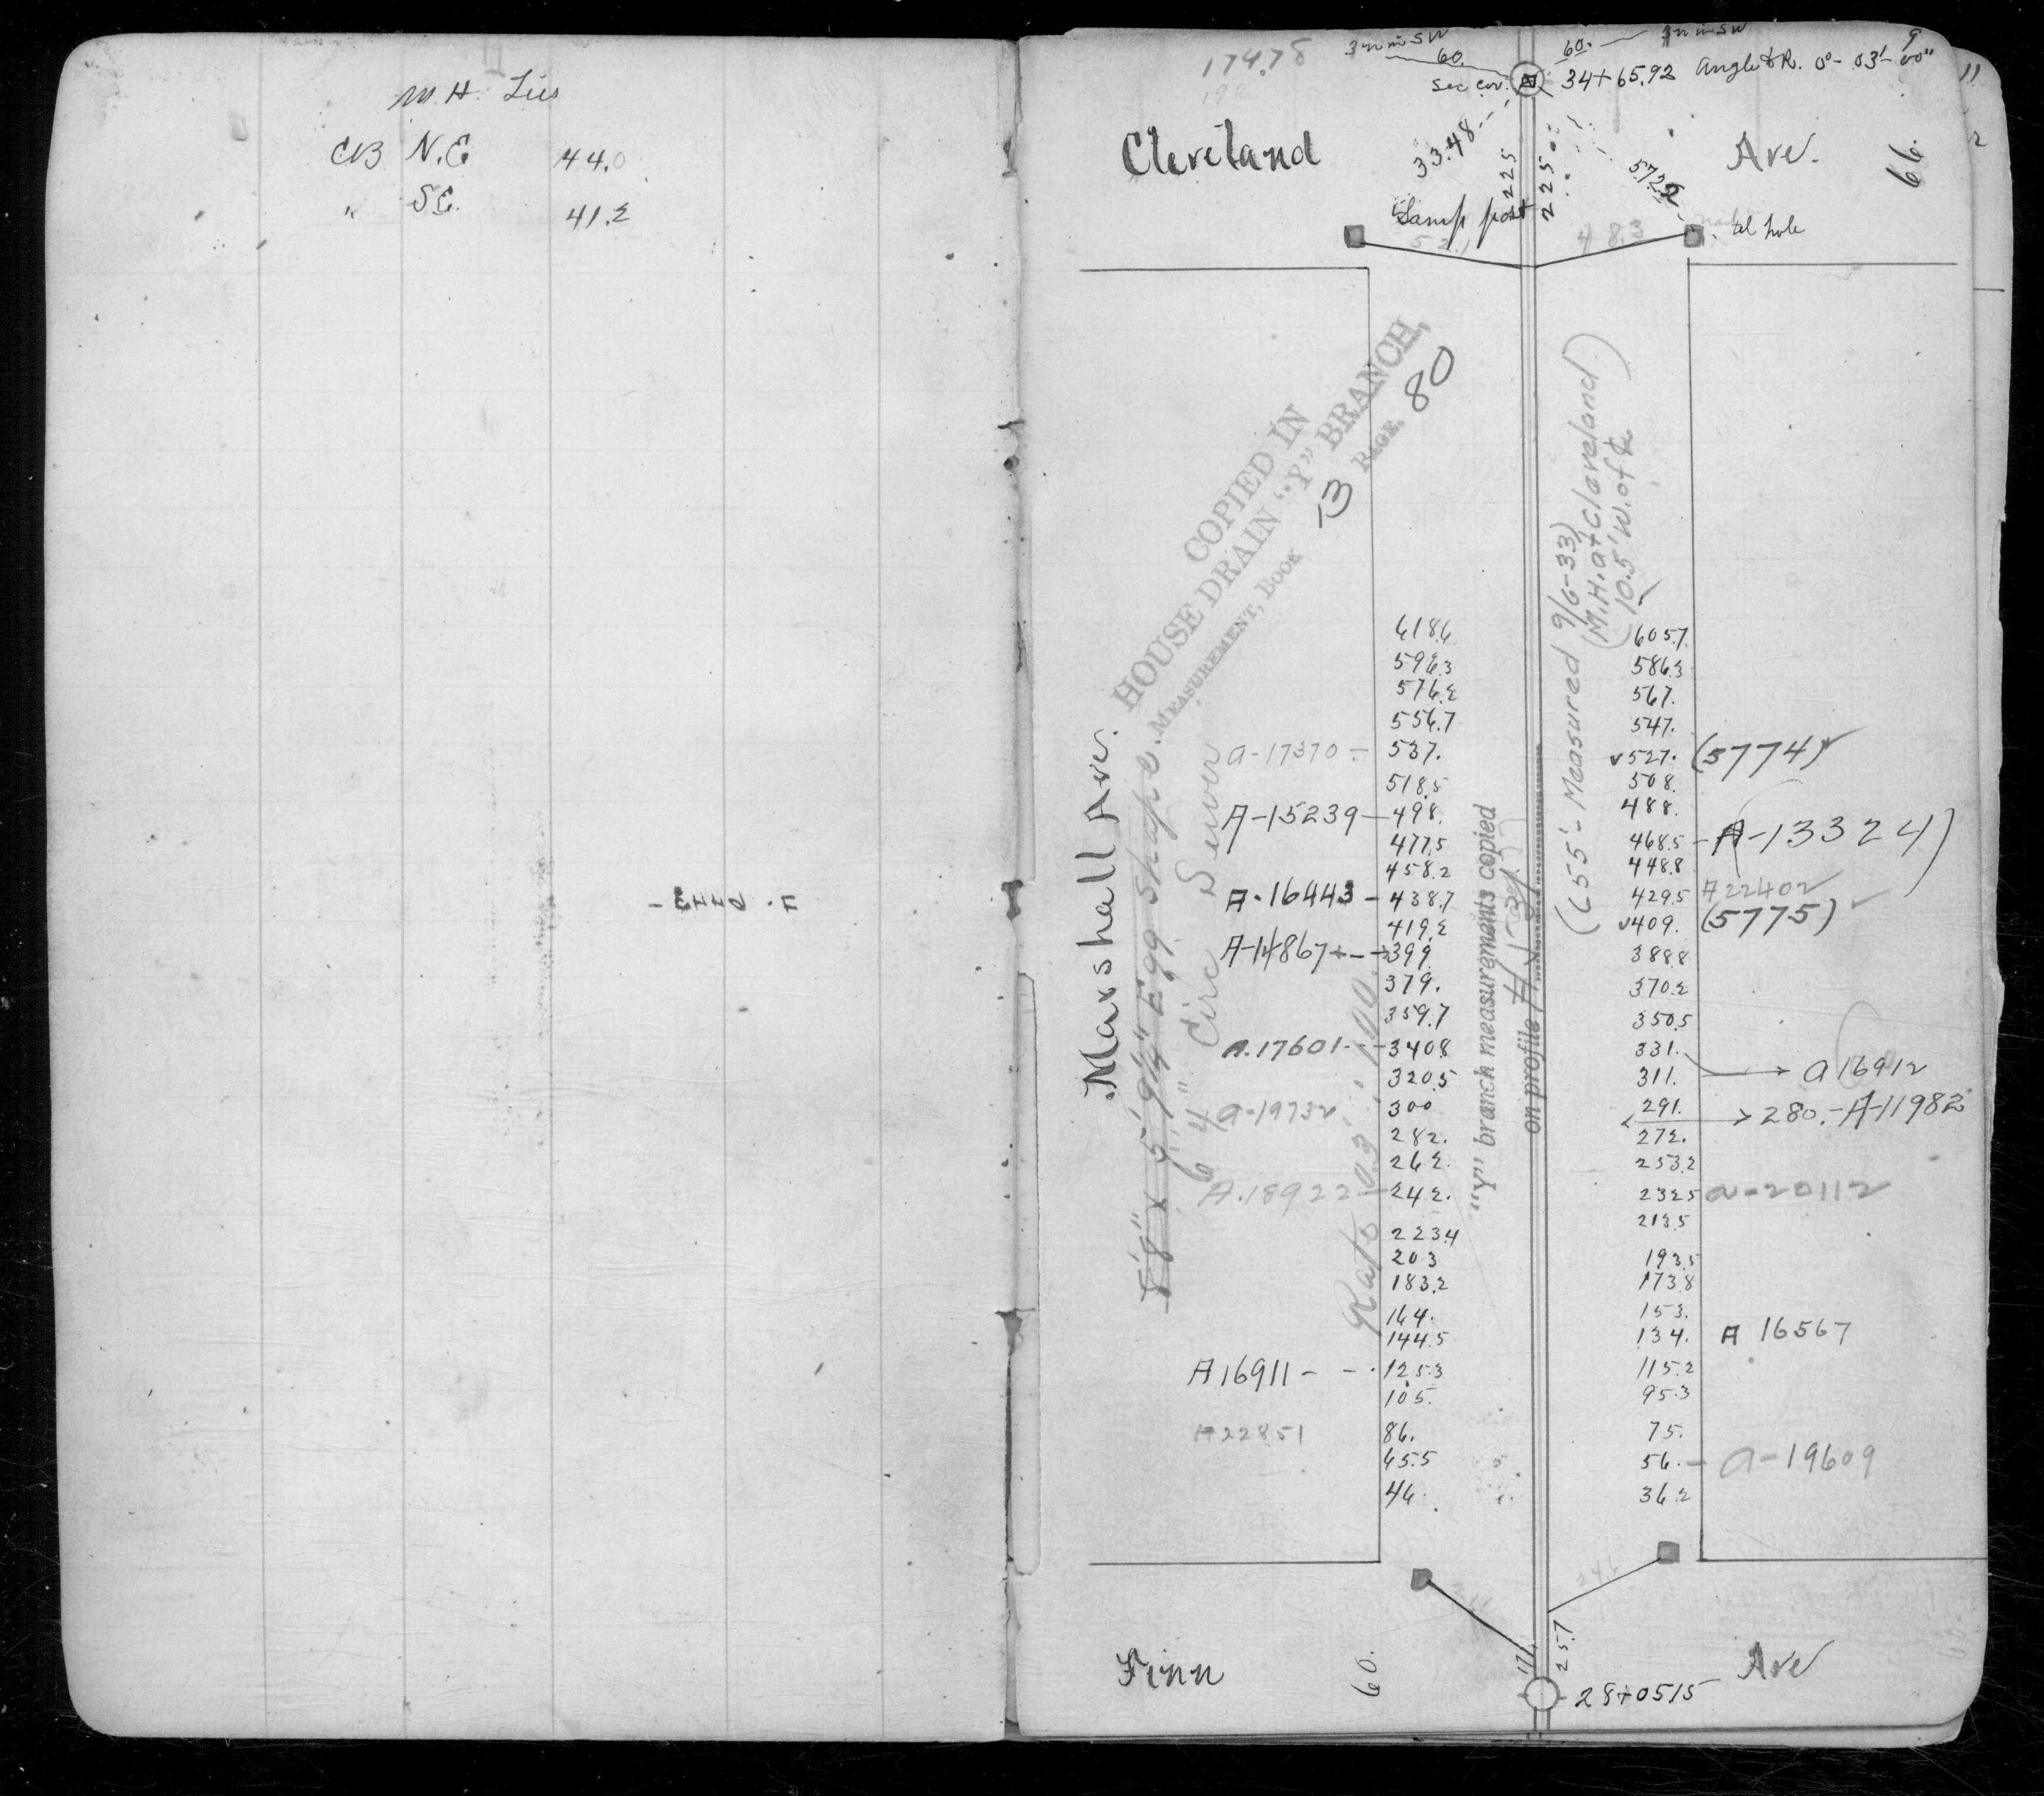 M.H. Ties
CB N.E 44.0
" S.E. 41.2
F. 2443 -
9
174.78
60.
60.
Sec cor.
34+65.92 Angle to R. 0°-03'-00"
Cleveland
Ave.
66.
33.48
225
225
57.25
Lamp post
tel pole
52.1
48.3
COPIED IN
HOUSE DRAIN "Y" BRANCH,
MEASUREMENT, BOOK 13 PAGE, 80
Marshall Ave.
5'8" x 5'9¼" Egg Shape
6'4" Circ Sewer
Rate 0.3':100.
"Y" branch measurements copied
on profile
(655'- Measured 9/6-33)
(M.H. at Cleveland)
(10.5' W. of ¢)
618.6 605.7
596.3 586.3
576.2 567.
556.7 547.
a-17370 - 537. √527. (5774)√
518.5 508.
A-15239 - 498. 488.
477.5 468.5 - A-13324)
458.2 448.8
A-16443 - 438.7 429.5 A22402
419.2 √409. (5775) √
A-14867 - - 399. 388.8
379. 370.2
359.7 350.5
A.17601 - - 340.8 331.
320.5 311. → a16912
a-19732 300 291. → 280.-A-11982
282. 272.
262. 253.2
A.18922 - 242. 232.5 a-20112
223.4 213.5
203 193.5
183.2 173.8
164. 153.
144.5 134. A 16567
A16911 - - 125.3 115.2
105. 95.3
A22851 86. 75.
65.5 56. - a-19609
46. 36.2
Finn
60.
111.
25.7
28+05.15
Ave